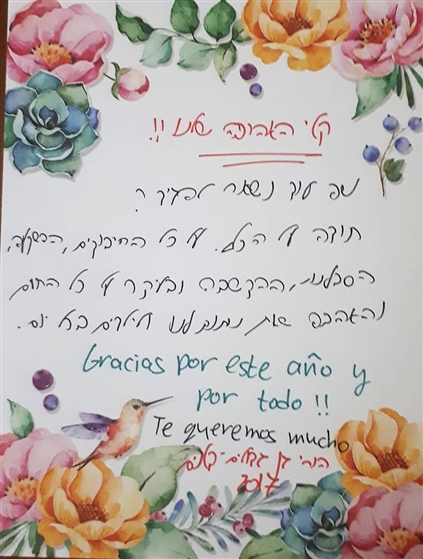 קטי האהובה שלנו !!
מה עוד נשאר להגיד ?
תודה על הכל. על כל החיבוקים, ההשקעה,
הסבלנות, ההקשבה ובעיקר על כל החום
והאהבה שאת נותנת לנו בכל יום.
Gracias por este año y
por todo !!
Te queremos mucho
הורי גן
2017